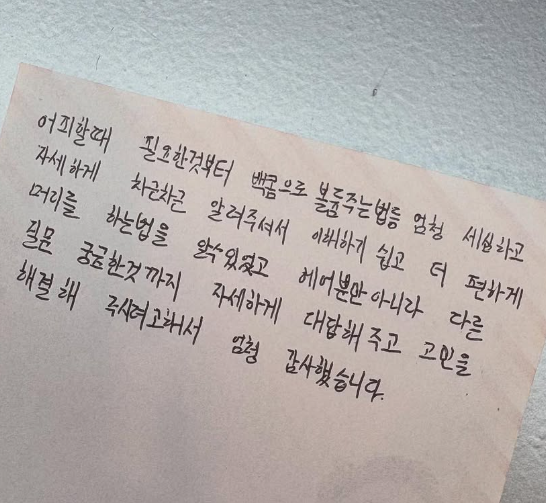 어찌할때 필요한것부터 백콤으로 볼륨주는법등 엄청 세심하고
자세하게 차근차근 알려주셔서 이해하기 쉽고 더 편하게
머리를 하는법을 알수있었고 헤어뿐만아니라 다른
질문 궁금한것까지 자세하게 대답해주고 고민을
해결해 주시려고해서 엄청 감사했습니다.